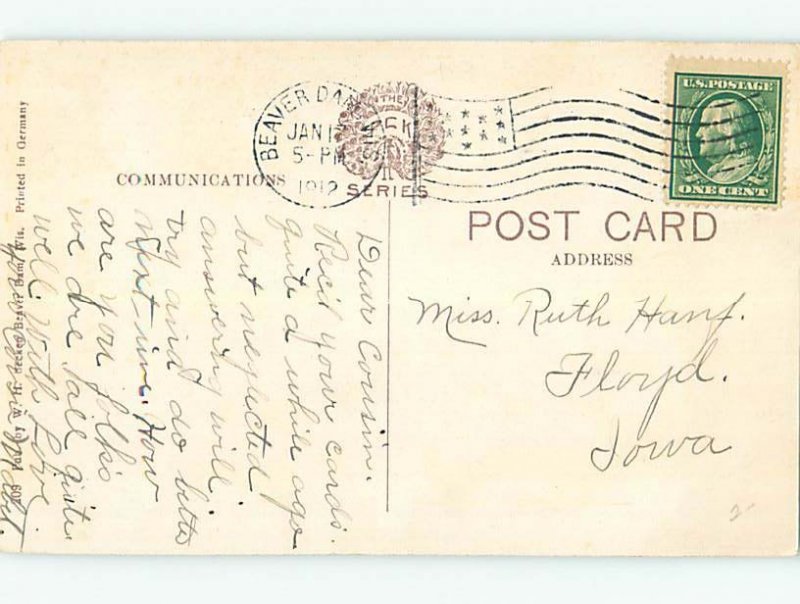 BEAVER DAM
WIS.
JAN 1
5-PM
1912
THE
SERIES
U.S. POSTAGE
ONE CENT
COMMUNICATIONS
POST CARD
ADDRESS
Miss. Ruth Hanf.
Floyd.
Iowa
Dear Cousin.
Rec'd your cards.
quite a while ago
but neglected
answering will
try and do better
next time. How
are you folks
we are all quite
well. With Love
your Cousin Mabel.
109 Pub. by W. H. Beaver Dam, Wis. Printed in Germany